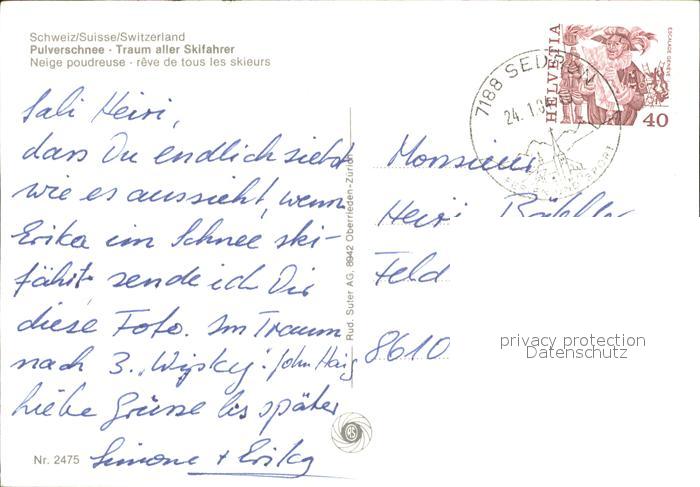 Schweiz/Suisse/Switzerland
Pulverschnee · Traum aller Skifahrer
Neige poudreuse · rêve de tous les skieurs
Sali Heiri,
dass Du endlich siehst
wie es aussieht, wenn
Erika im Schnee ski-
fährt sende ich Dir
diese Foto. Im Traum
nach 3. "Wysky": John Haig
Liebe Grüsse bis später
Simone + Erika
Nr. 2475
Rud. Suter AG, 8942 Oberrieden-Zürich
7188 SEDRUN
24.1.
HELVETIA
ESCALADE GENÈVE
40
Monsieur
Heiri
Feld
8610
privacy protection
Datenschutz